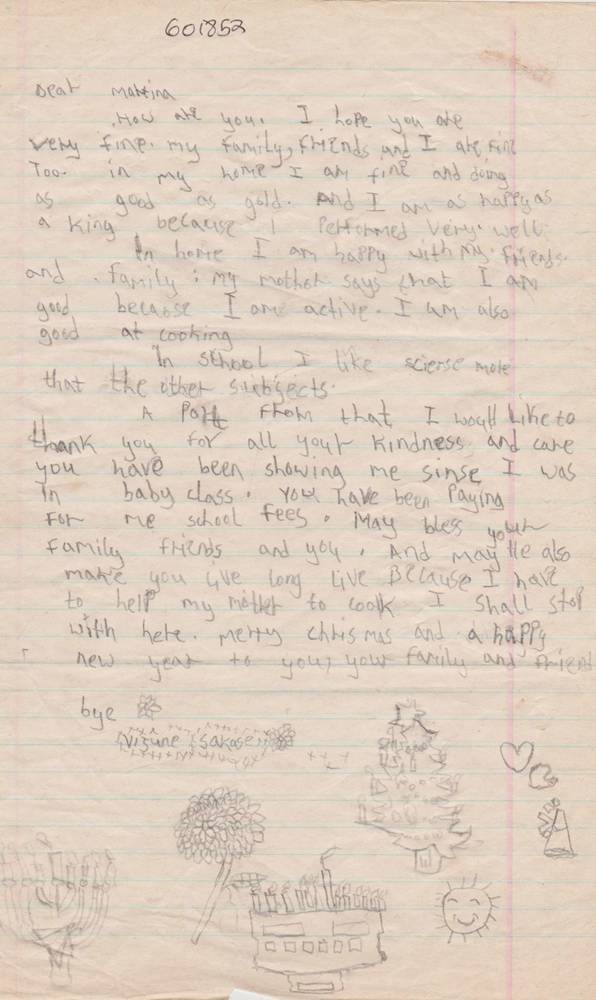 601852
Dear Martina
How are you. I hope you are
very fine. my family, friends and I are fine
Too. in my home I am fine and doing
as good as gold. And I am as happy as
a king because I Performed very well.
In home I am happy with my friends.
and family. my mother says that I am
good because I am active. I am also
good at cooking
In school I like scierse more
that the other subjects.
A Part from that I would like to
thank you for all your kindness and care
you have been showing me sinse I was
in baby class. You have been Paying
For me school fees. May bless your
family friends and you. And may He also
make you live long live Because I have
to help my mother to cook I shall stop
with here. Merry Chrismas and a happy
new year to you, your family and friend
bye